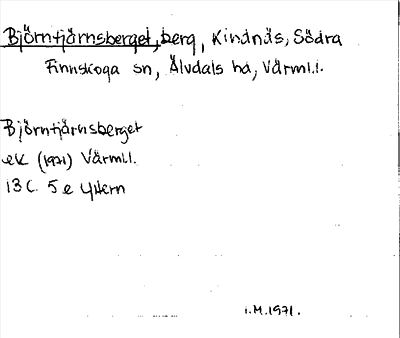 Björntjärnsberget, berg, Kindnäs, Södra
Finnskoga sn, Älvdals hd, Värml.l.
Björntjärnsberget
ek (1971) Värml.l.
13 C. 5 e Yttern
i.M.1971.